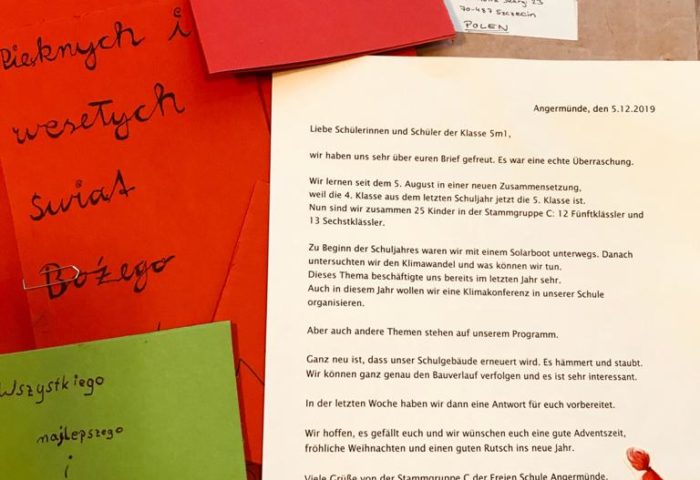 Pięknych i
wesołych
Świąt
Bożego
Wszystkiego
najlepszego
i
70-487 Szczecin
POLEN
Angermünde, den 5.12.2019
Liebe Schülerinnen und Schüler der Klasse 5m1,
wir haben uns sehr über euren Brief gefreut. Es war eine echte Überraschung.
Wir lernen seit dem 5. August in einer neuen Zusammensetzung,
weil die 4. Klasse aus dem letzten Schuljahr jetzt die 5. Klasse ist.
Nun sind wir zusammen 25 Kinder in der Stammgruppe C: 12 Fünftklässler und
13 Sechstklässler.
Zu Beginn der Schuljahres waren wir mit einem Solarboot unterwegs. Danach
untersuchten wir den Klimawandel und was können wir tun.
Dieses Thema beschäftigte uns bereits im letzten Jahr sehr.
Auch in diesem Jahr wollen wir eine Klimakonferenz in unserer Schule
organisieren.
Aber auch andere Themen stehen auf unserem Programm.
Ganz neu ist, dass unser Schulgebäude erneuert wird. Es hämmert und staubt.
Wir können ganz genau den Bauverlauf verfolgen und es ist sehr interessant.
In der letzten Woche haben wir dann eine Antwort für euch vorbereitet.
Wir hoffen, es gefällt euch und wir wünschen euch eine gute Adventszeit,
fröhliche Weihnachten und einen guten Rutsch ins neue Jahr.
Viele Grüße von der Stammgruppe C der Freien Schule Angermünde.